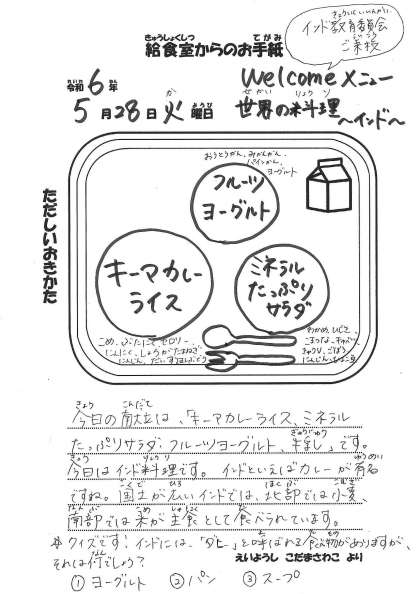 給食室からのお手紙
インド教育委員会
ご来校
令和6年
5月28日 火曜日
Welcomeメニュー
世界の料理
～インド～
ただしいおきかた
おうとうかん、みかんかん、
パインかん、
ヨーグルト
フルーツ
ヨーグルト
キーマカレー
ライス
ミネラル
たっぷり
サラダ
こめ、ぶたにく、セロリー、
にんにく、しょうが、たまねぎ
にんじん、
わかめ、ひじき、
こまつな、キャベツ、
きゅうり、ごぼう
にんじん、
今日の献立は、「キーマカレーライス、ミネラル
たっぷりサラダ、フルーツヨーグルト、牛乳」です。
今日はインド料理です。インドといえばカレーが有名
ですね。国土が広いインドでは、北部では小麦、
南部では米が主食として食べられています。
☆クイズです！インドには、「ダヒ」と呼ばれる食べ物がありますが、
それは何でしょう？
えいようし こだまさわこ より
①ヨーグルト ②パン ③スープ